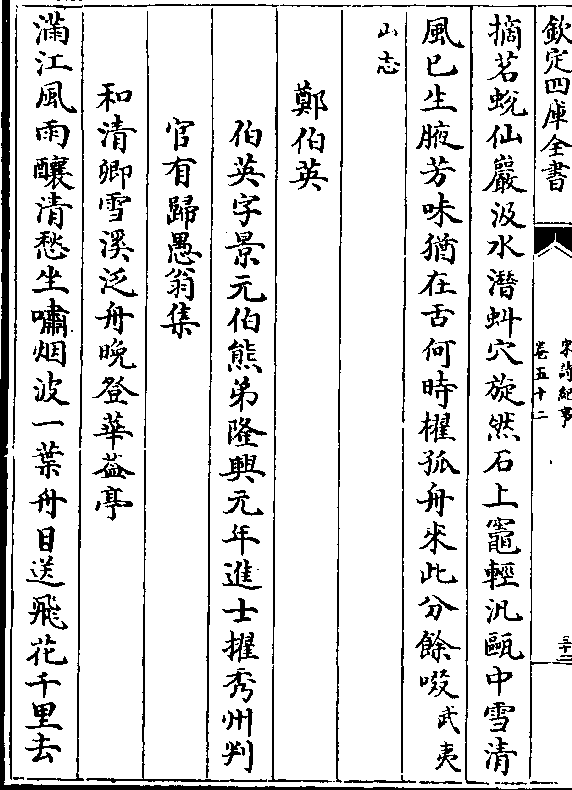 欽定四庫全書
宋詩紀事
卷五十二
三十二
摘茗蛻仙巖汲水潛虯穴旋然石上竈輕汎甌中雪清
風已生腋芳味猶在舌何時櫂孤舟来此分餘啜武夷
山志
鄭伯英
伯英字景元伯熊弟隆興元年進士擢秀州判
官有歸愚翁集
和清卿雪溪泛舟晚登華葢亭
滿江風雨釀清愁坐嘯烟波一葉舟目送飛花千里去